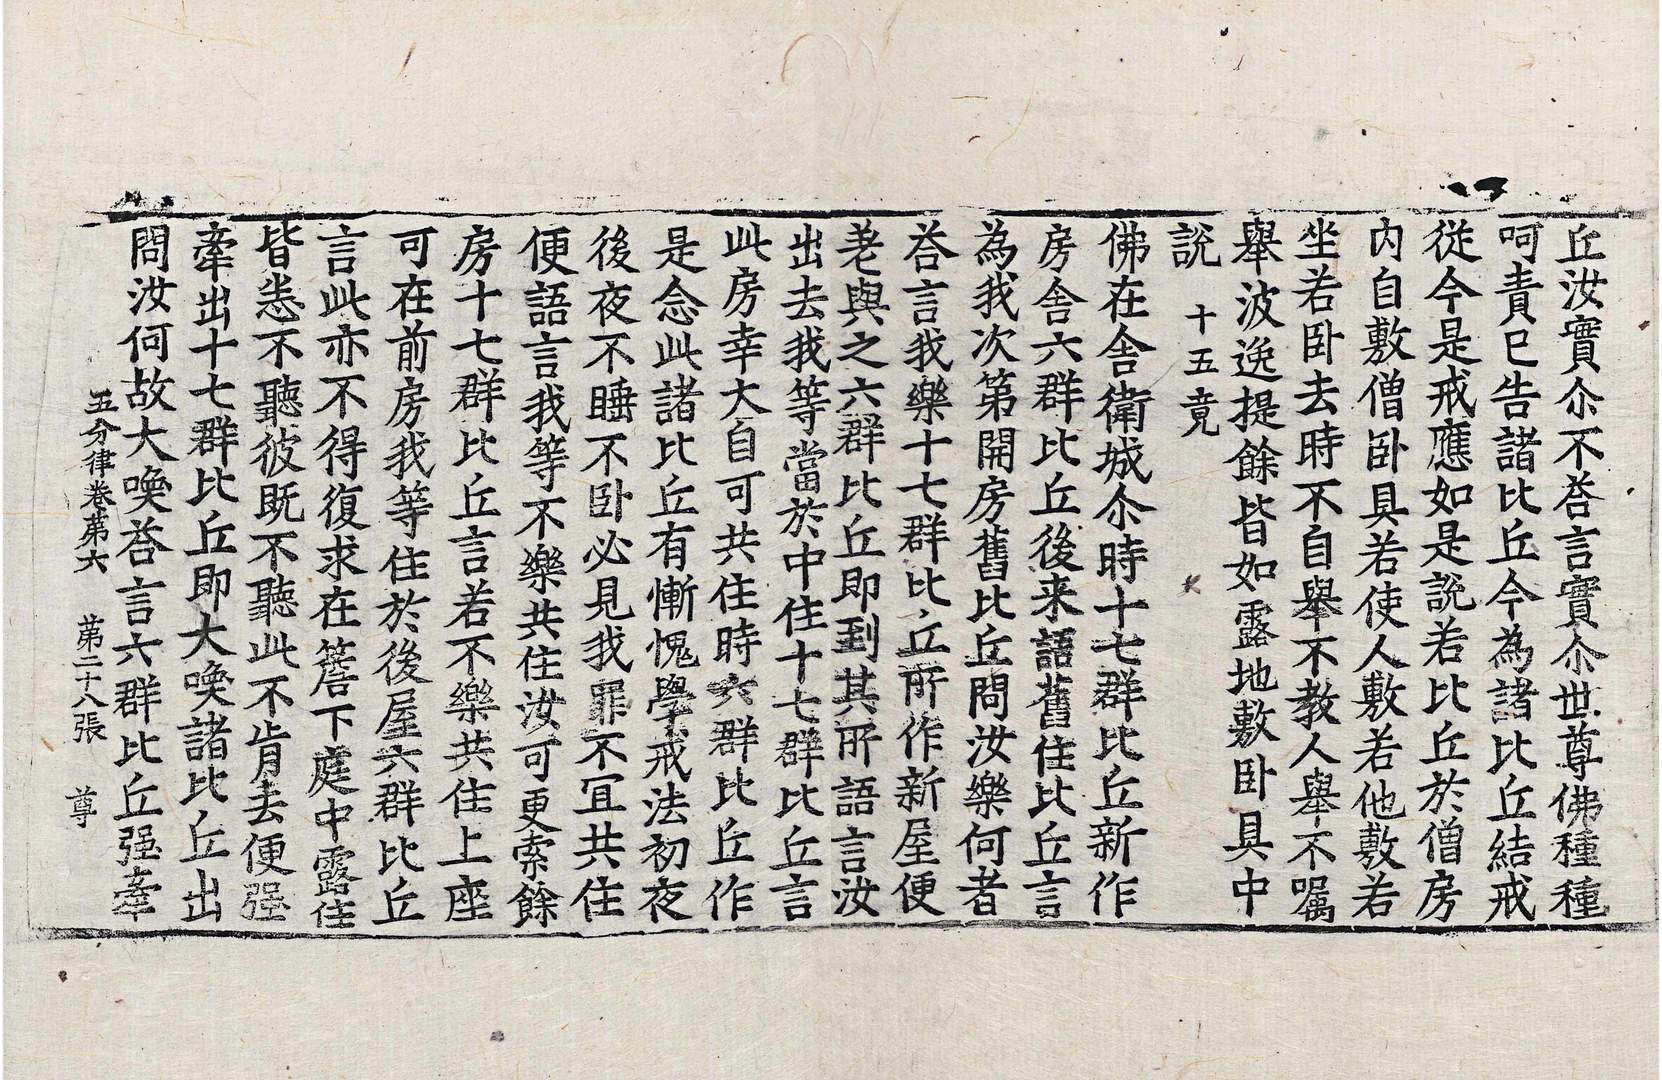 丘汝實尒不荅言實尒世尊佛種種
呵責已告諸比丘今為諸比丘結戒
從今是戒應如是說若比丘於僧房
內自敷僧卧具若使人敷若他敷若
坐若卧去時不自舉不教人舉不囑
舉波逸提餘皆如露地敷卧具中
說 十五竟
佛在舍衛城尒時十七群比丘新作
房舍六群比丘後来語舊住比丘言
為我次第開房舊比丘問汝樂何者
荅言我樂十七群比丘所作新屋便
老與之六群比丘即到其所語言汝
出去我等當於中住十七群比丘言
此房幸大自可共住時六群比丘作
是念此諸比丘有慚愧學戒法初夜
後夜不睡不卧必見我罪不冝共住
便語言我等不樂共住汝可更索餘
房十七群比丘言若不樂共住上座
可在前房我等住於後屋六群比丘
言此亦不得復求在簷下庭中露住
皆悉不聽彼既不聽此不肯去便强
牽出十七群比丘即大喚諸比丘出
問汝何故大喚荅言六群比丘强牽
五分律卷第六 第二十八張 尊